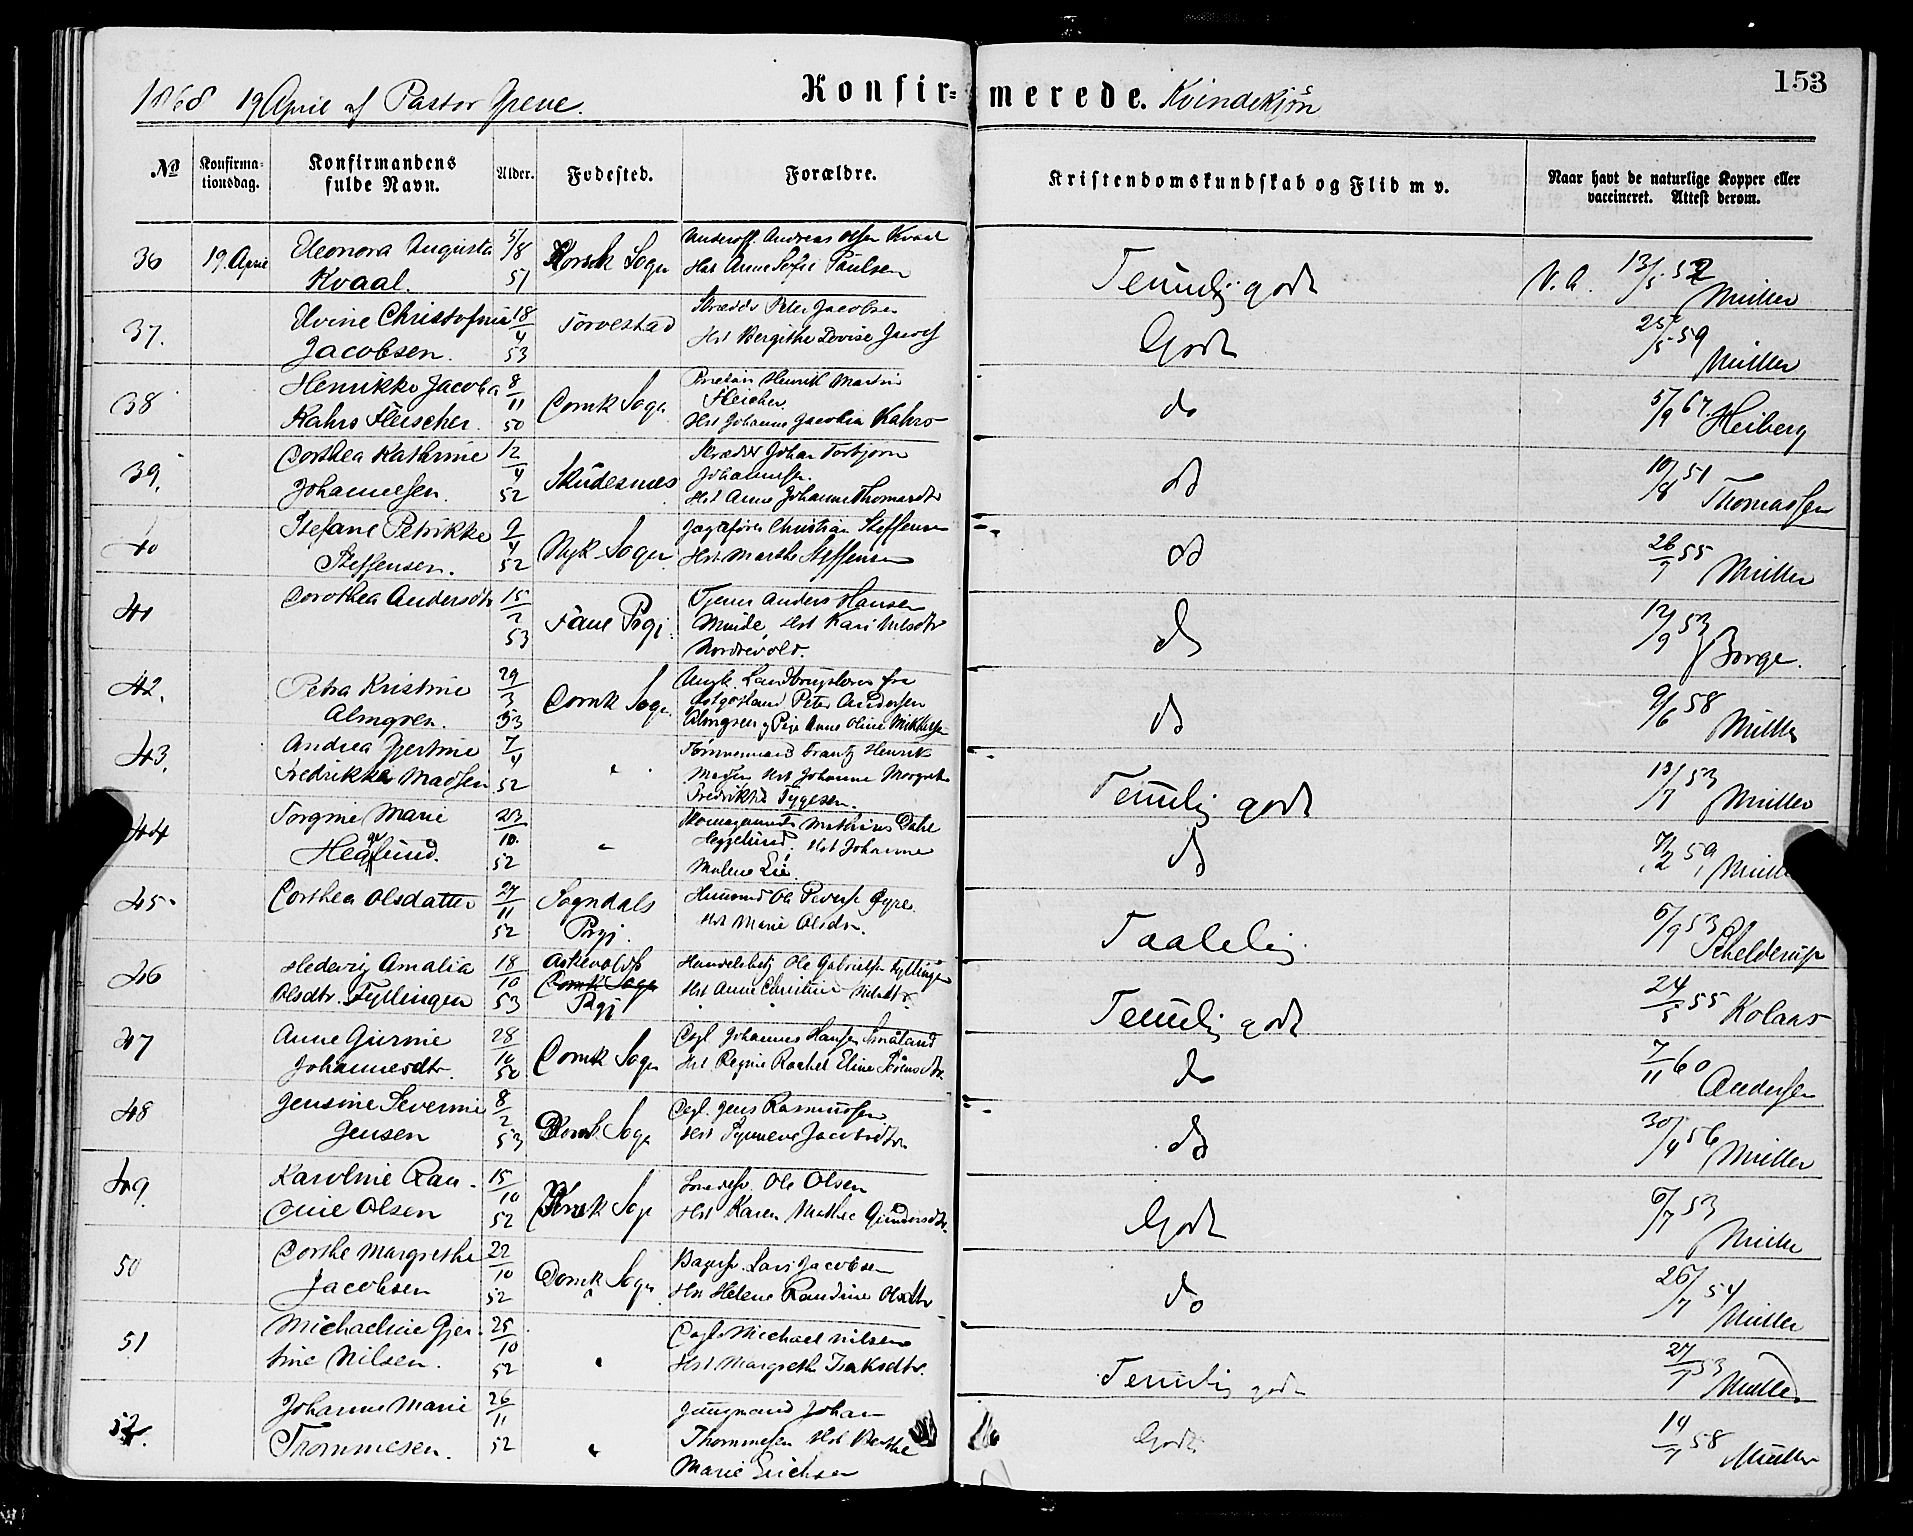 1868 19 April af Pastor Greve.
Konfirmerede. Kvindekjøn
153
No
Konfirma-
tionsdag.
Konfirmandens
fulde Navn.
Alder.
Fødested.
Forældre.
Kristendomskundskab og Flid m v.
Naar havt de naturlige Kopper eller
vaccineret. Attest derom.
36 19. April Eleonora Augusta 5/8 Korsk Sogn Underoff. Andreas Olsen Kvaal
Kvaal. 51 Hst Anne Sofie Paulsen
Temmelig godt V. A. 13/5 52 Müller
37. Elvine Christofine 18/4 Torvestad Skrædder Peter Jacobsen
Jacobsen. 53 Hst Bergithe Lovise
Godt 25/5 59 Müller
38 Henrikke Jacoba 8/11 Domk Sogn Henrik Martin
Kahrs Fleischer. 50 Fleischer
Hst Johanne Jacobia Kahrs
do 5/9 67 Heiberg
39. Dorthea Kathrine 12/4 Skudesnes Skrædder Johan Torbjørn
Johannesen. 52 Johannesen.
Hst Anne Johanne Thomasdtr
do 10/8 51 Thomassen
40 Stefane Petrikke 9/4 Nyk. Sogn Jagtefører Christian Steffensen
Steffensen. 52 Hst Marthe Steffensen
do 26/9 55 Müller
41 Dorothea Andersdtr 15/2 53 Fane Prgj. Tjener Anders Hansen
Hst Kari Nilsdtr
Nordrevold.
do 12/9 53 Borge.
42. Petra Kristine 29/3 Domk Sogn Ungk. Landbrugslærer fra
Almgren. 53 Østgøtland Peter Andersen
Almgren og Pige Anne Oline
do 9/6 58 Müller
43. Andrea Gjertine 7/4 " Tømmermand Frantz Henrik
Fredrikke Madsen. 52 Madsen Hst Johanne Margrethe
Fredrikke Tygesen.
Temmelig godt 13/7 53 Müller
44 Torgine Marie 23/10. " Skomagermst Mathias Dahl
Heggelund. 52 Heggelund. Hst Johanne
Malene Lie.
do 7/2 59 Müller
45. Dorthea Olsdatter 27/11 Sogndals Husmand Ole Pedersen Øyre.
52 Prgj. Hst Marie Olsdtr.
Taalelig 6/9 53 Schelderup
46 Hedevig Amalia 18/10 Askevolds Handelsbetj Ole Gabrielsen Fyllingen
Olsdtr. Fyllingen 53 Domk Sogn Prgj Hst Anne Christine Nilsdtr.
Temmelig godt 24/5 55 Kolaas
47 Anne Gurine 28/10 Domk Sogn Dagl Johannes Hansen Småland
Johannesdtr. 50 Hst Regine Rachel Eline Sørensdtr.
do 7/11 60 Andersen
48 Jensine Severine 8/2 Domk. Sogn Dagl. Jens Rasmussen
Jensen 53 Hst Synneve Jacobsdtr
do 30/4 56 Müller
49. Karoline Ran- 15/10 Korsk Sogn Ole Olsen
dine Olsen 52 Hst Karen Mathea Gundersdtr.
Godt 6/7 53 Müller
50 Dorthe Margrethe 22/10 Domk Sogn Bagersv. Lars Jacobsen
Jacobsen 52 Hst Helene Randine Olsdtr
do 26/7 54 Müller
51 Michaeline Gjer- 25/10 " Dagl. Michael Nilsen
tine Nilsen. 52 Hst Margrethe Isaksdtr.
Temmelig godt 27/7 53 Müller
52. Johanne Marie 26/11 " Johan
Trommesen. 52 Thommesen Hst Berthe
Marie Erichsen
Godt 14/7 58 Müller